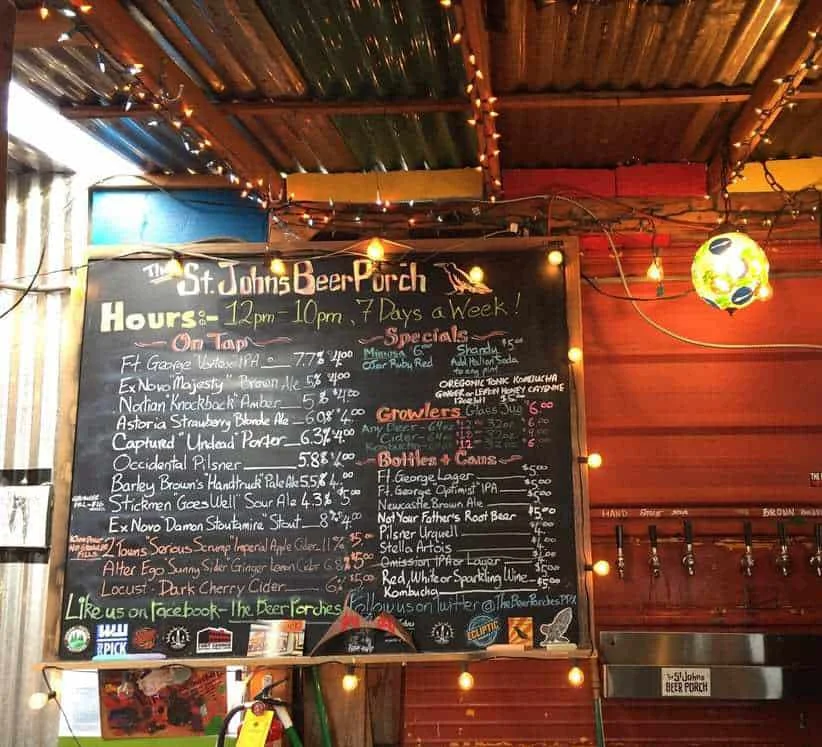 The St. Johns Beer Porch
Hours:- 12pm-10pm, 7 Days a Week!
On Tap
Ft. George IPA 7.7% $4.00
Ex Novo "Majesty" Brown Ale 5% $4.00
"Knockback" Amber 5% $4.00
Astoria Strawberry Blonde Ale 6.0% $4.00
Captured "Undead" Porter 6.3% $4.00
Occidental Pilsner 5.8% $4.00
Barley Brown's "Handtruck" Pale Ale 5.5% $4.00
Stickmen "Goes Well" Sour Ale 4.3% $5.00
Ex Novo Damon Stoutamire Stout 8% 4.00
2 Towns "Serious Scrump" Imperial Apple Cider 11% $5.00
Alter Ego Sunny Sider Ginger Lemon Cider 6.8 $5.00
Locust - Dark Cherry Cider 6% $5.00
Specials
Mimosa 6.00
Ruby Red
Shandy $5.00
Add Italian Soda
to any pint
OREGONIC TONIC KOMBUCHA
GINGER or LEMON HONEY CAYENNE
Growlers Glass Jug $6.00
Any Beer - 64oz 32oz $6.00
Cider - 64oz 32oz
Kombucha
Bottles + Cans
Ft. George Lager $5.00
Ft. George "Optimist" IPA $5.00
Newcastle Brown Ale $5.00
Not Your Father's Root Beer $5.00
Pilsner Urquell
Stella Artois
Omission IPA or Lager
Red, White or Sparkling Wine $5.00
Kombucha
Like us on Facebook - The Beer Porches
Follow us on Twitter @TheBeerPorchesPDX
PICK
ECLIPTIC
HAND
BROWN
The St Johns
BEER PORCH